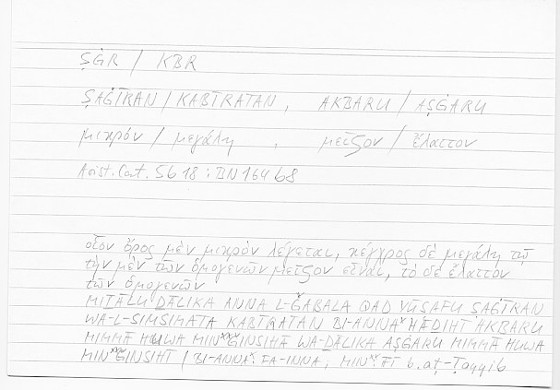 ṢĠR / KBR
ṢAĠĪRAN / KABĪRATAN, AKBARU / AṢĠARU
μικρόν / μεγάλη, μεῖζον / ἔλαττον
Arist. Cat. 5b18 : BN 164b8
οἷον ὄρος μὲν μικρὸν λέγεται, κέγχρος δὲ μεγάλη τῷ
τὴν μὲν τῶν ὁμογενῶν μεῖζον εἶναι, τὸ δὲ ἔλαττον
τῶν ὁμογενῶν
MIṮĀLU ḎĀLIKA ANNA L-ǦABALA QAD YŪṢAFU ṢAĠĪRAN
WA-L-SIMSIMATA KABĪRATAN BI-ANNAˣ HĀḎIHĪ AKBARU
MIMMĀ HUWA MINˣˣ ǦINSIHĀ WA-ḎĀLIKA AṢĠARU MIMMĀ HUWA
MINˣˣ ǦINSIHĪ / BI-ANNAˣ: FA-INNA, MINˣˣ: FĪ b. aṭ-Ṭayyib